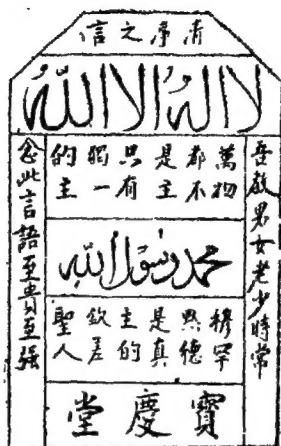 清淨之信
لا اله الا الله
吾教男女老少時常
萬物
都不
是主
只有
獨一
的主
محمد رسول الله
穆罕
黙德
是真
主的
欽差
聖人
念此言語至貴至强
寶慶堂